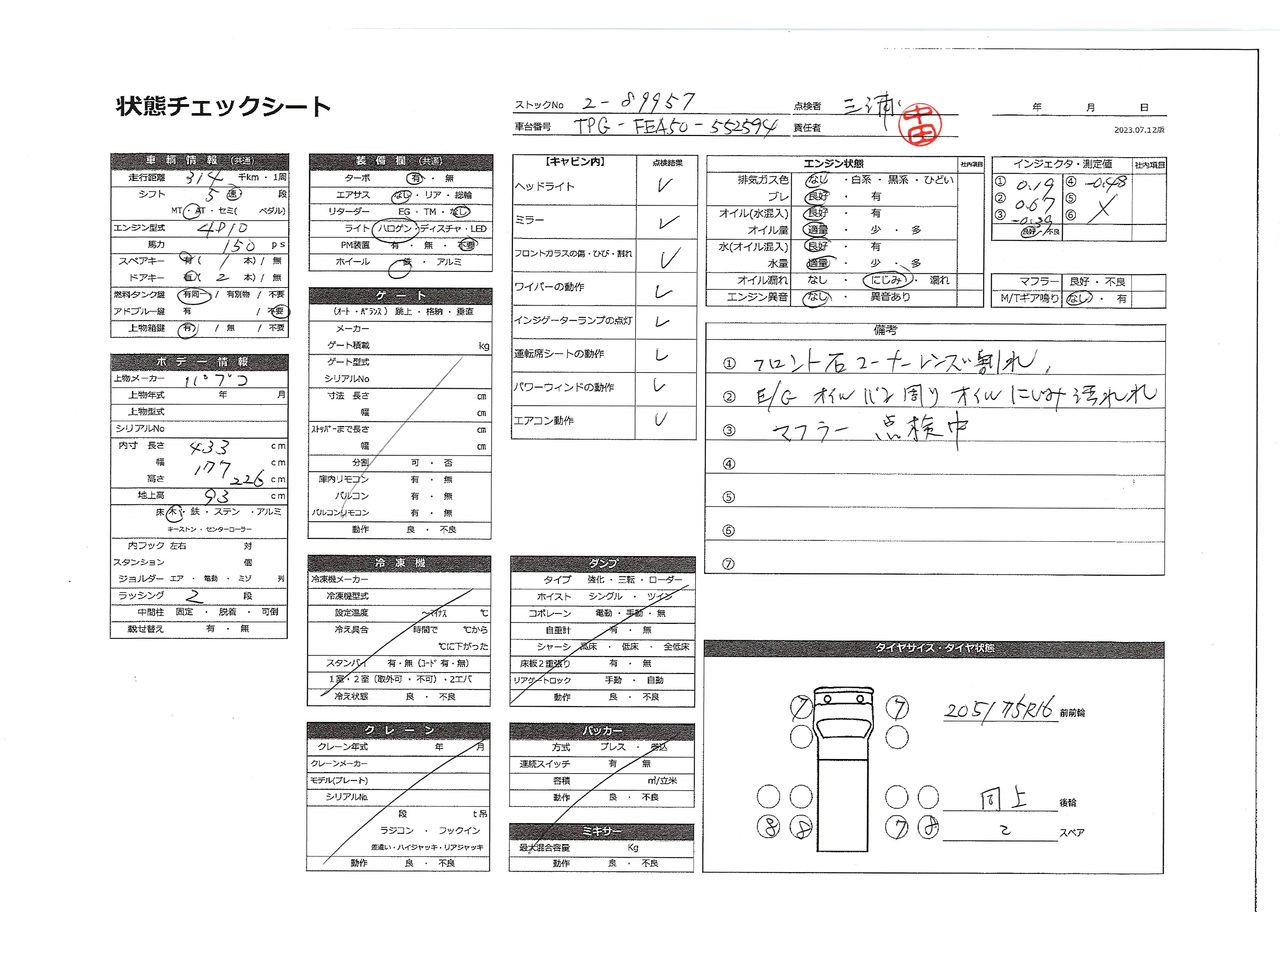 状態チェックシート
ストックNo 2-89957 点検者 三浦 年 月 日
車台番号 TPG-FEA50-552594 責任者 中田
2023.07.12版
車輌情報 (共通)
走行距離 314 千km・1周
シフト 5 速 段
MT・AT・セミ( ペダル)
エンジン型式 4P10
馬力 150 ps
スペアキー 有( 1 本) / 無
ドアキー 有( 2 本) / 無
燃料タンク鍵 有同一 / 有別物 / 不要
アドブルー鍵 有 / 不要
上物箱鍵 有 / 無 / 不要
ボデー情報
上物メーカー パブコ
上物年式 年 月
上物型式
シリアルNo
内寸 長さ 433 cm
幅 177 cm
高さ 226 cm
地上高 93 cm
床 木・鉄・ステン・アルミ
キーストン・センターコーラー
内フック 左右 対
スタンション 個
ジョルダー エア・電動・ミゾ 列
ラッシング 2 段
中間柱 固定・脱着・可倒
載せ替え 有・無
装備欄 (共通)
ターボ 有・無
エアサス なし・リア・総輪
リターダー EG・TM・なし
ライト ハロゲン・ディスチャ・LED
PM装置 有・無・不要
ホイール 鉄・アルミ
ゲート
(オート・バランス) 跳上・格納・垂直
メーカー
ゲート積載 kg
ゲート型式
シリアルNo
寸法 長さ cm
幅 cm
ストッパーまで長さ cm
幅 cm
分割 可・否
庫内リモコン 有・無
バルコン 有・無
バルコンリモコン 有・無
動作 良・不良
冷凍機
冷凍機メーカー
冷凍機型式
設定温度 ～マイナス ℃
冷え具合 時間で ℃から
℃に下がった
スタンバイ 有・無 (コード 有・無)
1室・2室 (取外可・不可)・2エバ
冷え状態 良・不良
クレーン
クレーン年式 年 月
クレーンメーカー
モデル(プレート)
シリアルNo.
段 t吊
ラジコン・フックイン
差違い・ハイジャッキ・リアジャッキ
動作 良・不良
【キャビン内】 点検結果
ヘッドライト ✓
ミラー ✓
フロントガラスの傷・ひび・割れ ✓
ワイパーの動作 ✓
インジケーターランプの点灯 ✓
運転席シートの動作 ✓
パワーウィンドの動作 ✓
エアコン動作 ✓
ダンプ
タイプ 強化・三転・ローダー
ホイスト シングル・ツイン
コボレーン 電動・手動・無
自重計 有・無
シャーシ 高床・低床・全低床
床板2重張り 有・無
リアゲートロック 手動・自動
動作 良・不良
パッカー
方式 プレス・巻込
連続スイッチ 有 無
容積 ㎥/立米
動作 良・不良
ミキサー
最大混合容量 Kg
動作 良・不良
エンジン状態 社内項目
排気ガス色 なし・白系・黒系・ひどい
ブレ 良好・有
オイル(水混入) 良好・有
オイル量 適量・少・多
水(オイル混入) 良好・有
水量 適量・少・多
オイル漏れ なし・にじみ・漏れ
エンジン異音 なし・異音あり
インジェクタ・測定値 社内項目
① 0.19 ④ -0.48
② 0.67 ⑤
③ -0.39 ⑥
良好/不良
マフラー 良好・不良
M/Tギア鳴り なし・有
備考
① フロント右コーナーレンズ割れ、
② E/G オイルパン周り オイルにじみ汚れ
③ マフラー 点検中
④
⑤
⑥
⑦
タイヤサイズ・タイヤ状態
7 7 205/75R16 前前輪
同上 後輪
8 8 7 8 2 スペア